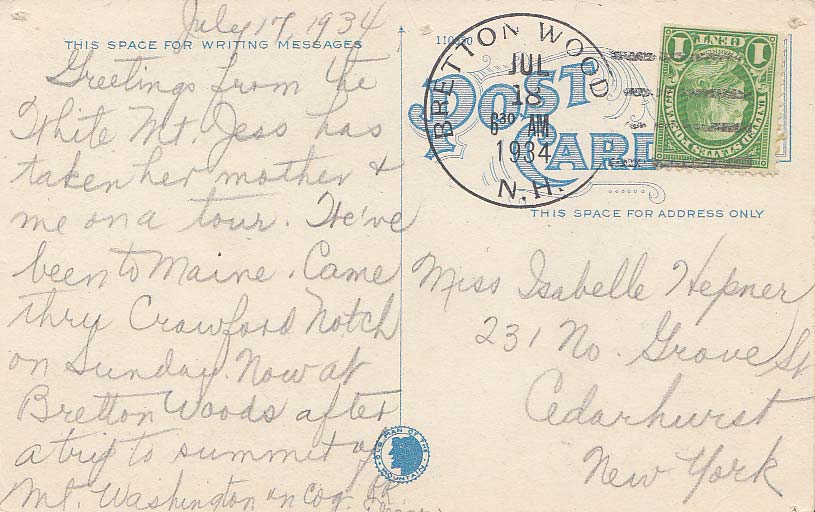 July 17, 1934
THIS SPACE FOR WRITING MESSAGES
Greetings from the
White Mt. Jess has
taken her mother &
me on a tour. We've
been to Maine. Came
thru Crawford Notch
on Sunday. Now at
Bretton Woods after
a trip to summit of
Mt. Washington on Cog.
OLD MAN OF THE
MOUNTAIN
110630
POST
CARD
BRETTON WOODS
JUL
18
830 AM
1934
N.H.
1 CENT 1
UNITED STATES POSTAGE
THIS SPACE FOR ADDRESS ONLY
Miss Isabelle Hepner
231 No. Grove St
Cedarhurst
New York